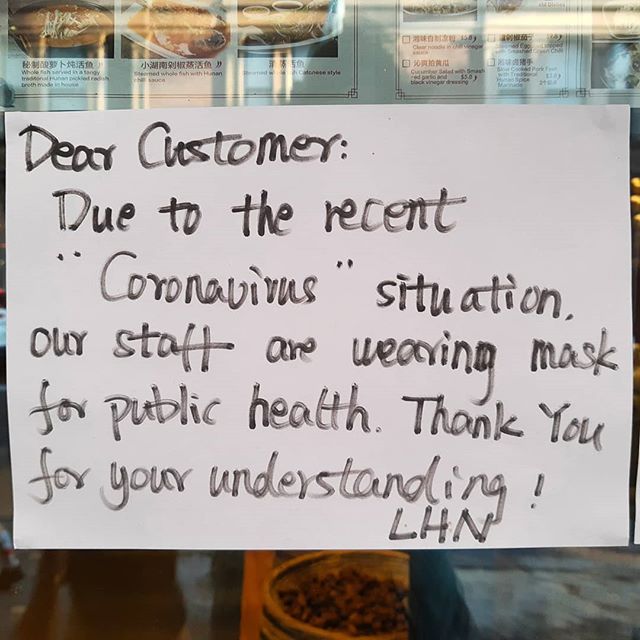 秘制酸萝卜炖活鱼
Whole fish served in a tangy
traditional Hunan pickled radish
broth made in house
小湖南剁椒蒸活鱼
Steamed whole fish with Hunan
chili sauce
清蒸活鱼
Steamed whole fish Cantonese style
湘味自制凉粉
Clear noodle in chili vinegar
sauce
沁爽拍黄瓜
Cucumber Salad with Smash
red garlic and $5.8
black vinegar dressing
Slow Cooked Pork Feet
with Traditional
Hunan Spice
Marinade
Dear Customer:
Due to the recent
"Coronavirus" situation,
our staff are wearing mask
for public health. Thank You
for your understanding!
LHN